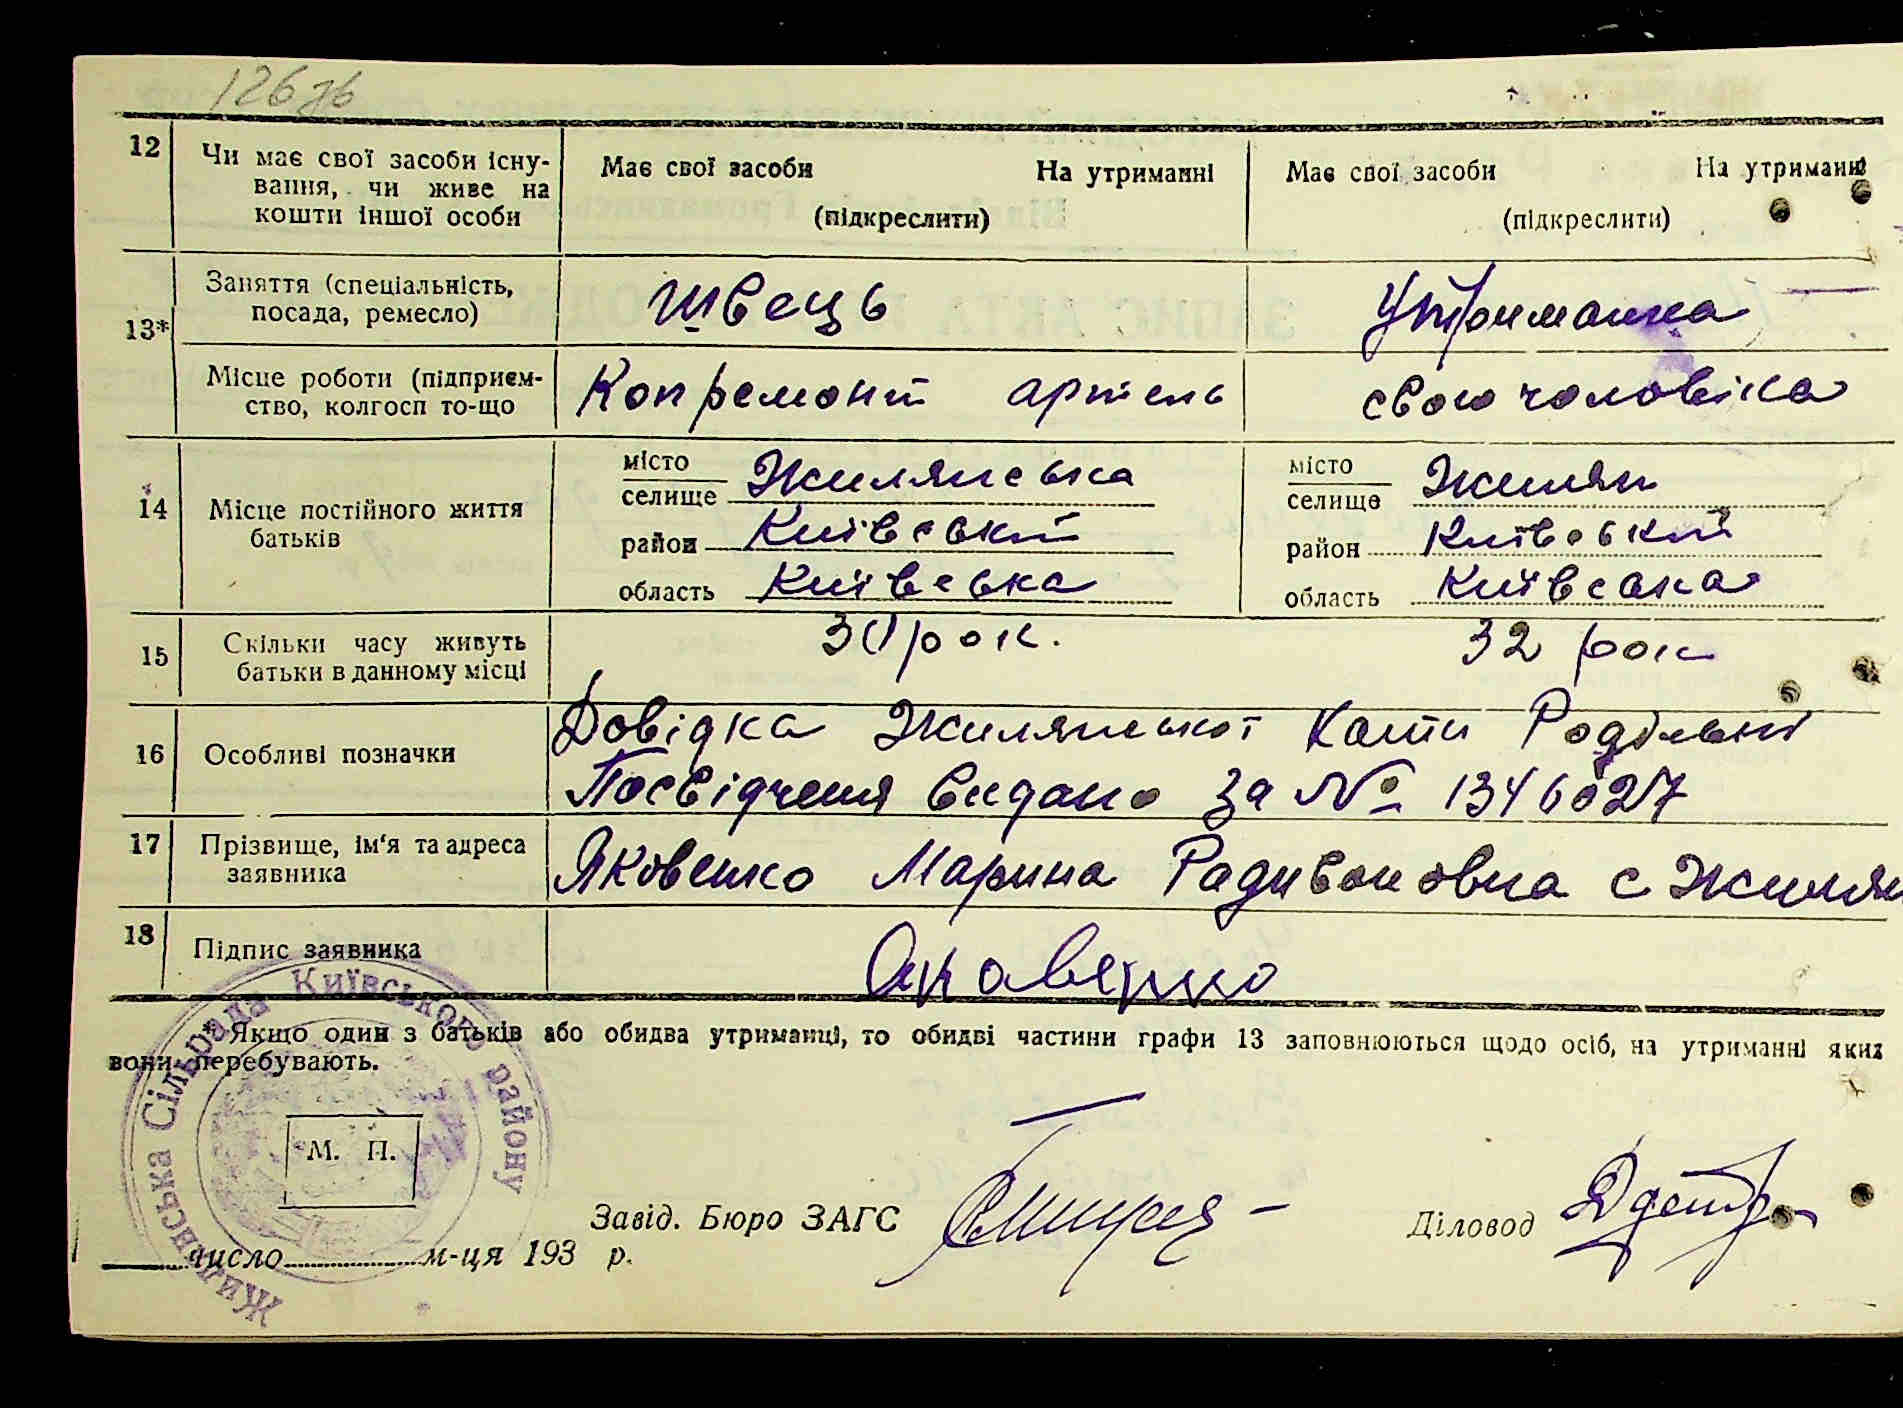 126 зв
12 Чи має свої засоби існу- Має свої засоби На утриманні Має свої засоби На утриманні
вання, чи живе на
кошти іншої особи (підкреслити) (підкреслити)
13* Заняття (спеціальність, швець Утриманка
посада, ремесло)
Місце роботи (підприєм- Копремонт артель свого чоловіка
ство, колгосп то-що
14 Місце постійного життя батьків
місто
селище Жилянська
район Київський
область Київська
місто
селище Жилян
район Київський
область Київська
15 Скільки часу живуть 30 рок. 32 рок
батьки в данному місці
16 Особливі позначки Довідка Жилянської Хати Родільні
Посвідченя видано за № 1346027
17 Прізвище, ім'я та адреса Яковенко Марина Радивоновна с Жилян
заявника
18 Підпис заявника
* Якщо один з батьків або обидва утриманці, то обидві частини графи 13 заповнюються щодо осіб, на утриманні яких
вони перебувають.
Жилянська Сільрада Київського району
М. П.
Завід. Бюро ЗАГС Діловод
число м-ця 193 р.